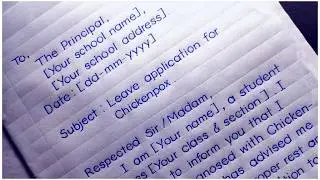 To,
The Principal,
[Your school name],
[Your school address]
Date: [dd-mm-yyyy]
Subject: Leave application for
Chickenpox
Respected Sir/Madam,
I am [Your name], a student
[Your class & section]. I
to inform you that I
diagnosed with Chicken-
has advised me
proper rest an